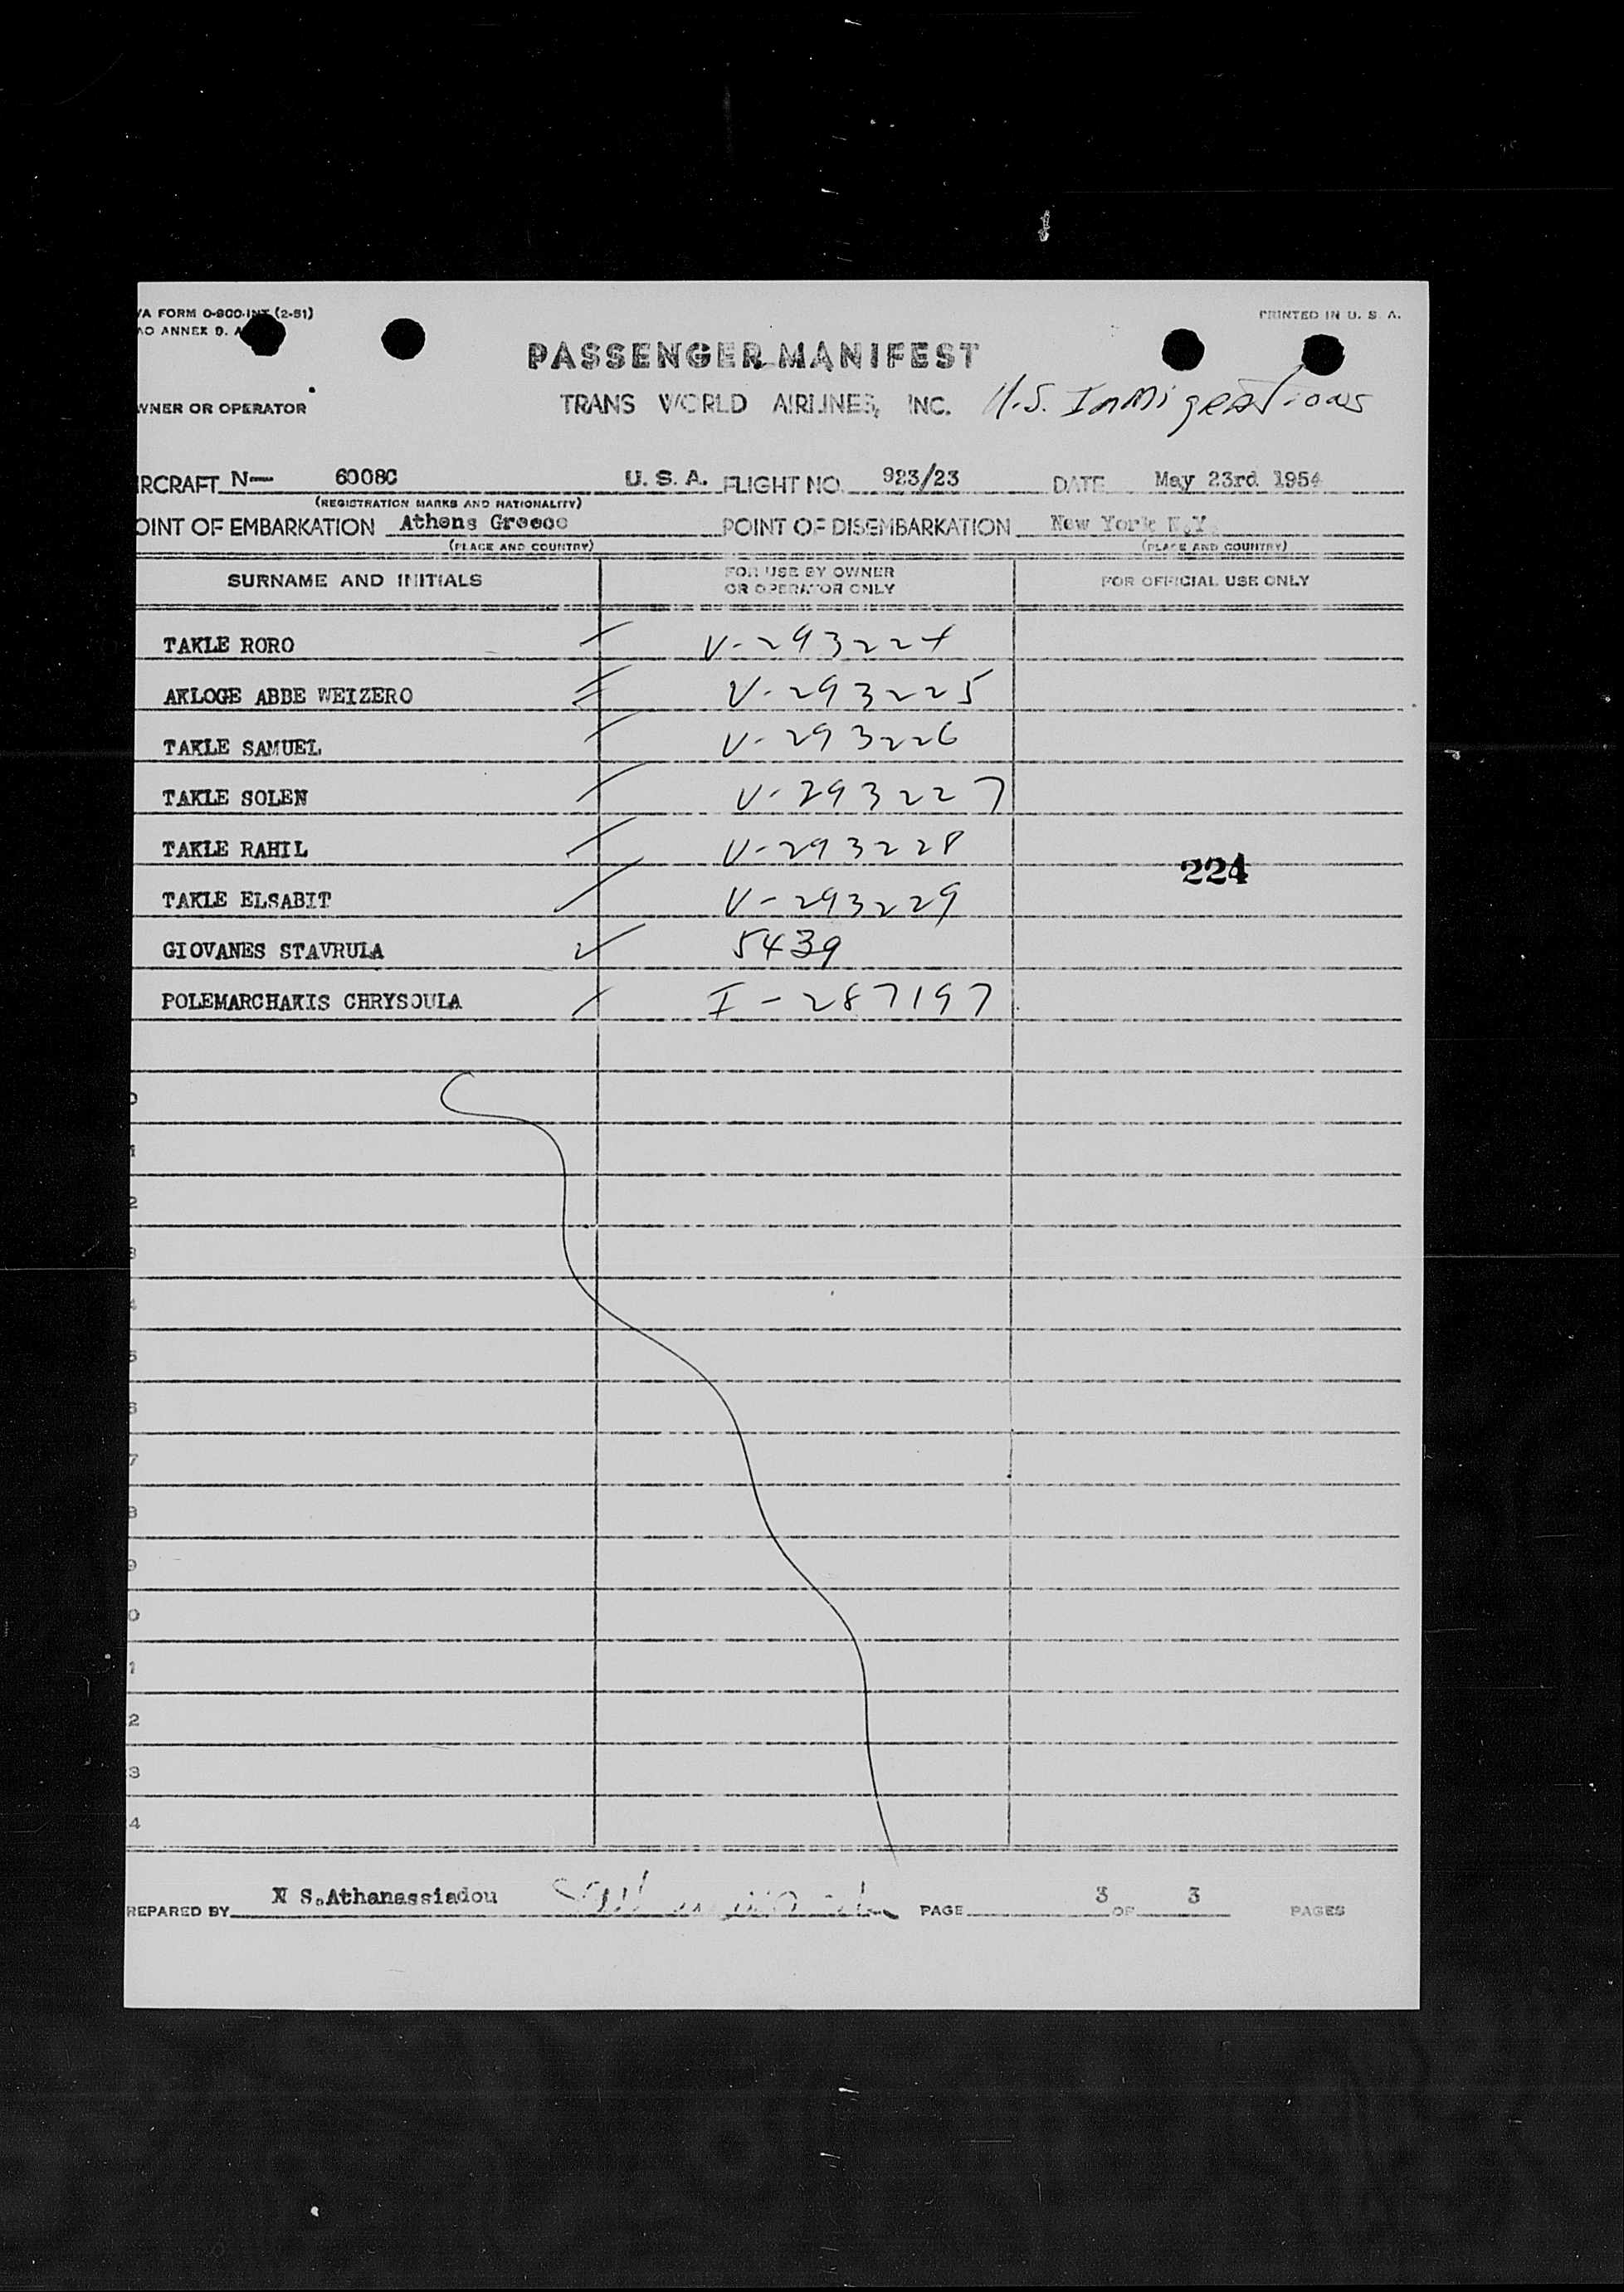 /A FORM 0-900-INT (2-51) PRINTED IN U. S. A.
AO ANNEX 9. A
PASSENGER MANIFEST
WNER OR OPERATOR TRANS WORLD AIRLINES, INC. U.S. Immigrations
IRCRAFT N— 6008C U. S. A. FLIGHT NO. 923/23 DATE May 23rd 1954
(REGISTRATION MARKS AND NATIONALITY)
OINT OF EMBARKATION Athens Greece POINT OF DISEMBARKATION New York N.Y.
(PLACE AND COUNTRY) (PLACE AND COUNTRY)
SURNAME AND INITIALS FOR USE BY OWNER OR OPERATOR ONLY FOR OFFICIAL USE ONLY
TAKLE RORO V-293224
AKLOGE ABBE WEIZERO V-293225
TAKLE SAMUEL V-293226
TAKLE SOLEN V-293227
TAKLE RAHIL V-293228
224
TAKLE ELSABIT V-293229
GIOVANES STAVRULA 5439
POLEMARCHAKIS CHRYSOULA I-287197
0
1
2
3
4
5
6
7
8
9
0
1
2
3
4
REPARED BY X S.Athanassiadou PAGE 3 OF 3 PAGES